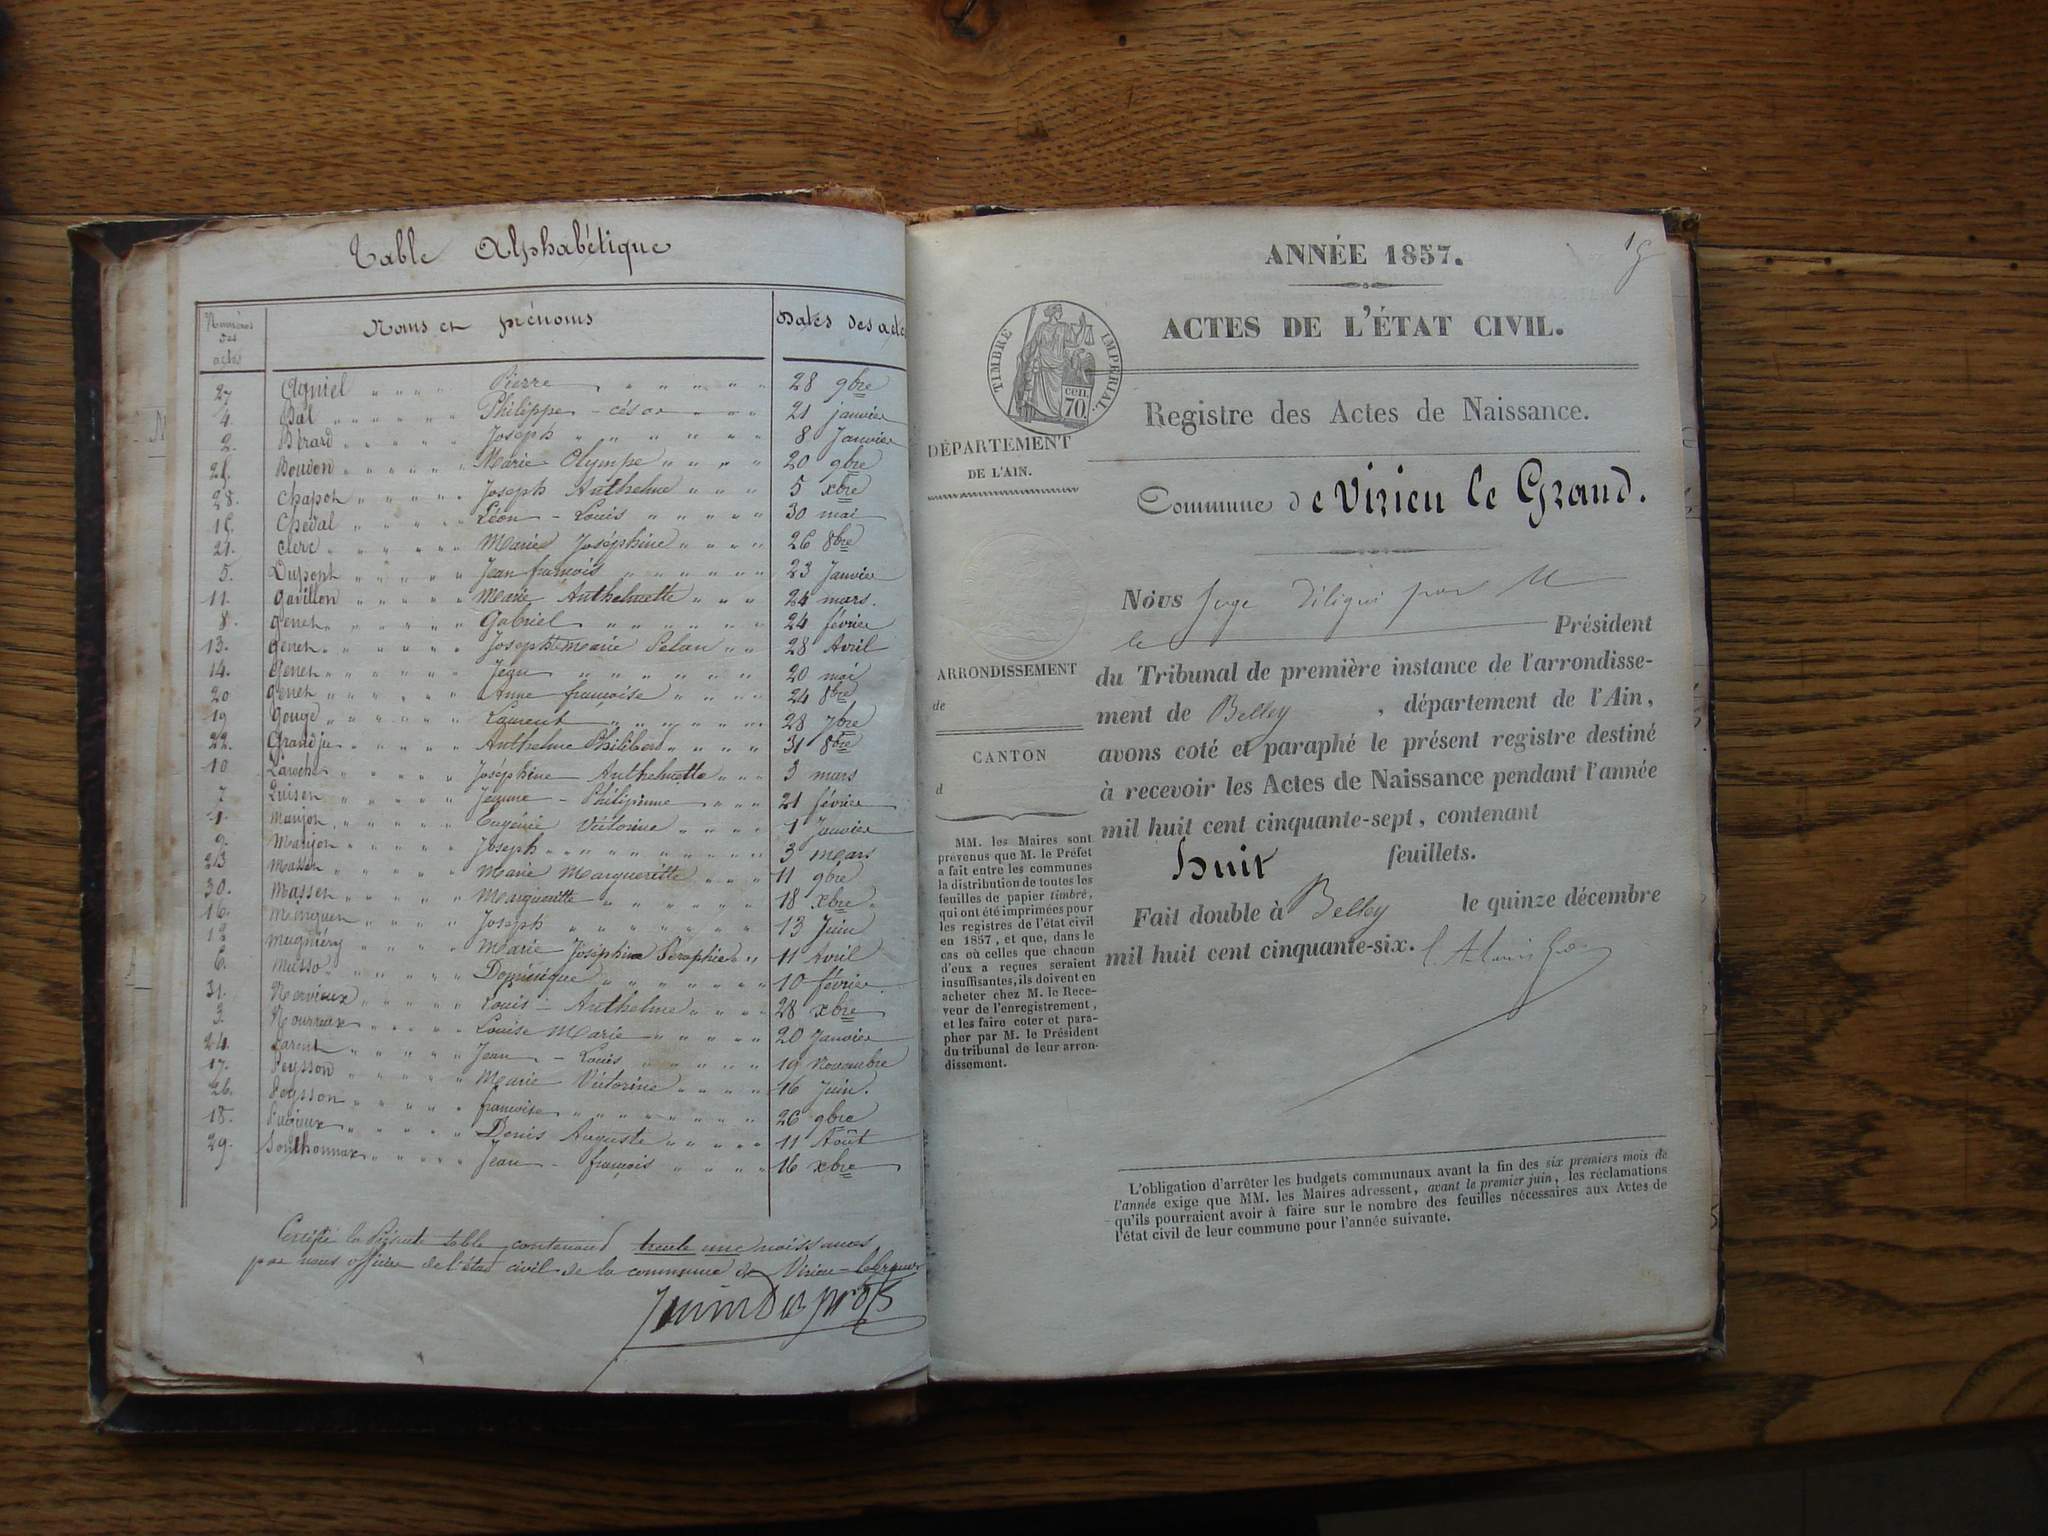 Table Alphabétique
Numéros des actes
Noms et prénoms
Dates des acte
27 Agniel " " " " Pierre " " " " " 28 9bre
4. Bal " " " " " " Philippe - césar " " " 21 janvier
2. Bérard " " " " " Joseph " " " " " " 8 Janvier
Boudon " " " " " " Marie Olympe " " " " 20 9bre
28. Chapot " " " " " Joseph Anthelme " " " 5 xbre
Cheval " " " " " Léon - Louis " " " " " 30 mai
21. Clerc " " " " " " Marie Joséphine " " " " 26 8bre
5. Dupont " " " " " Jean françois " " " " " " 23 Janvier
11. Gavillon " " " " " Marie Anthelmette " " " 24 mars.
8. Genet " " " " " " Gabriel " " " " " " 24 février
13. Genet " " " " " " Joseph Marie " " 28 Avril
14. Genet " " " " " " Jean " " " " " " " 20 mai
20 Genet " " " " " " Anne françoise " " " " 24 8bre
19 Gouge " " " " " " Laurent " " " " " " 28 7bre
22. Grandje " " " " " Anthelme Philibert " " " " 31 8bre
10 Laroche " " " " " Joséphine Anthelmette " " " 3 mars
7 Luisen " " " " " Jeanne - Philipinne " " " 21 février
1. Manjon " " " " " Eugénie Victorine " " " " 1 Janvier
9. Manjon " " " " " Joseph " " " " " " " " " 3 mars
23 Masson " " " " " Marie Margueritte " " " 11 9bre
30. Masson " " " " " Margueritte " " " " " " 18 xbre.
16. " " " " Joseph " " " " " " " 13 Juin
12 Mugniéry " " " " Marie Joséphine Séraphie " " 11 Avril
6. Musso " " " " " " Dominique " " " " " " " 10 février
31. Nervieux " " " " " Louis - Anthelme " " " " 28 xbre
3. Nourreux " " " " " Louise Marie " " " " " 20 Janvier
24 " " " " " Jean - Louis " " " " " 19 Novembre
17. Peysson " " " " " Marie Victorine " " " " 16 Juin.
26. Peysson " " " " " françoise " " " " " " " 26 9bre
18. " " " " " Denis Auguste " " " " " 11 Août
29. Sonthonnax " " " " " Jean - françois " " " " " 16 xbre
Certifié la présente table contenant trente une naissances
par nous officier de l'état civil de la commune de Virieu-legrand
ANNÉE 1857.
ACTES DE L'ÉTAT CIVIL.
TIMBRE IMPÉRIAL.
cen. 70
Registre des Actes de Naissance.
DÉPARTEMENT
DE L'AIN.
Commune de Virieu le Grand.
Nous Juge par M
le Président
du Tribunal de première instance de l'arrondisse-
ment de Belley , département de l'Ain,
avons coté et paraphé le présent registre destiné
à recevoir les Actes de Naissance pendant l'année
mil huit cent cinquante-sept, contenant
huit feuillets.
Fait double à Belley le quinze décembre
mil huit cent cinquante-six.
ARRONDISSEMENT
de
CANTON
d
MM. les Maires sont
prévenus que M. le Préfet
a fait entre les communes
la distribution de toutes les
feuilles de papier timbré,
qui ont été imprimées pour
les registres de l'état civil
en 1857, et que, dans le
cas où celles que chacun
d'eux a reçues seraient
insuffisantes, ils doivent en
acheter chez M. le Rece-
veur de l'enregistrement,
et les faire coter et para-
pher par M. le Président
du tribunal de leur arron-
dissement.
L'obligation d'arrêter les budgets communaux avant la fin des six premiers mois de
l'année exige que MM. les Maires adressent, avant le premier juin, les réclamations
qu'ils pourraient avoir à faire sur le nombre des feuilles nécessaires aux Actes de
l'état civil de leur commune pour l'année suivante.